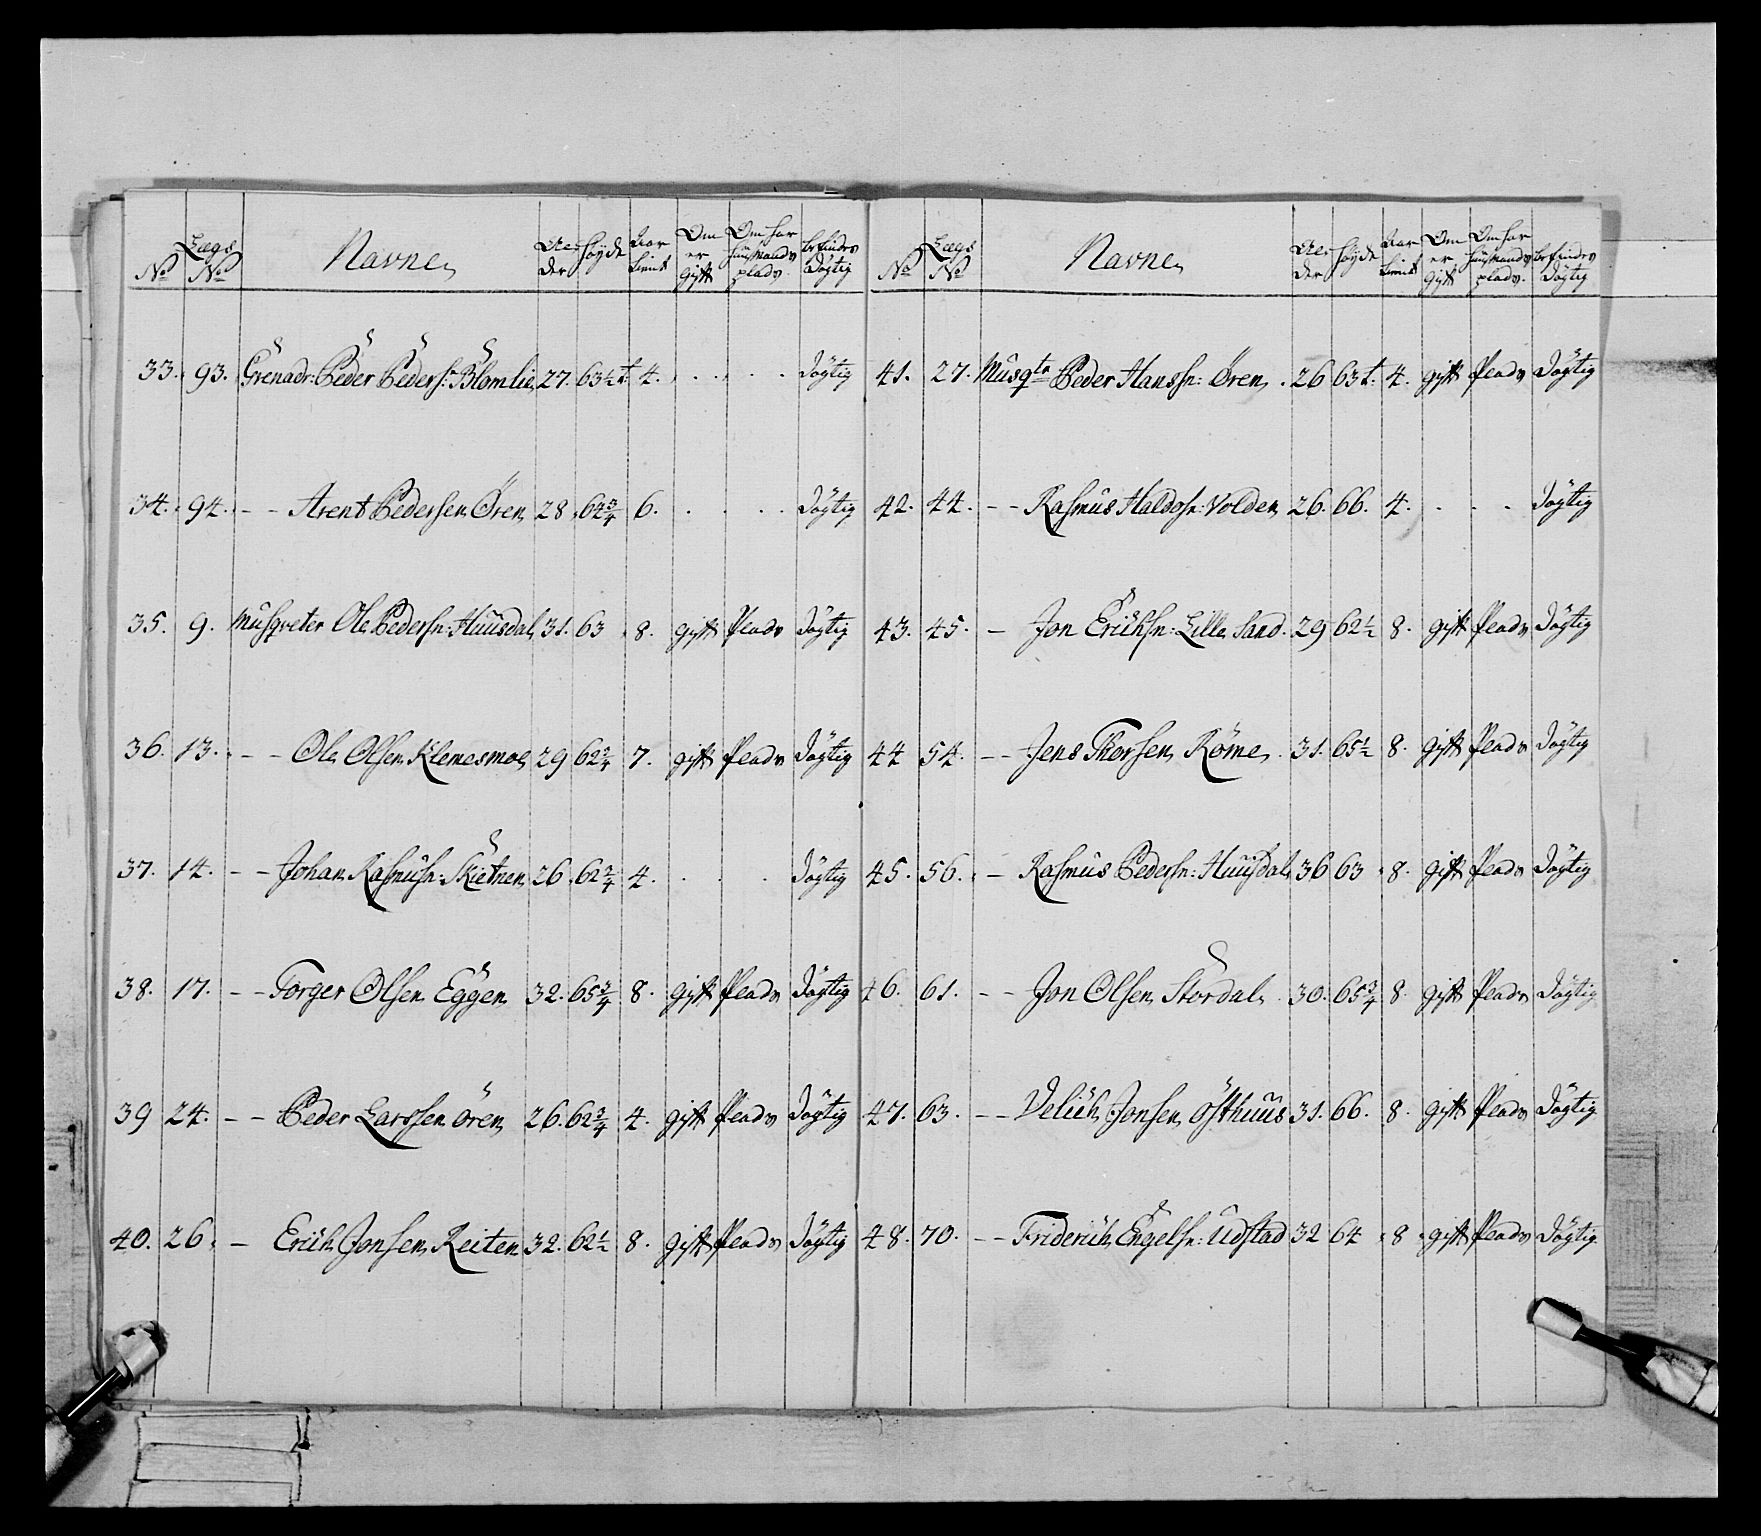 No Lægs No Navne Alder Høyde Aar tient Om er gift Om har Huusmands plads befindes Dögtig
33. 93. Grenadr: Peder Peders: Blomlie 27. 63½ t. 4. . . . . Dögtig
34. 94. - - Arent Pedersen Ören 28 64¾ 6. . . . . Dögtig
35. 9. Musqveter Ole Pedersn: Huusdal 31. 63 8. gift Plads Dögtig
36. 13. - - Ole Olsen Klemesmoe 29 62¾ 7. gift Plads Dögtig
37. 14. - - Johan Rasmusn: Skietnen 26. 62¾ 4. . . . Dögtig
38. 17. - - Torger Olsen Eggen 32. 65¾ 8. gift Plads Dögtig
39 24. - - Peder Larssen ören 26. 62¾ 4. gift Plads Dögtig
40. 26. - Erich Jonsen Reiten 32. 62½ 8. gift Plads Dögtig
No Lægs No Navne Alder Høyde Aar tient Om er gift Om har Huusmands plads. befindes Dögtig
41. 27. Musqtr Peder Hanssn: Ören . 26 63 t. 4. gift Plads Dögtig
42. 44. - - Rasmus Haldosn: Volden 26. 66. 4. . . . Dögtig
43. 45. - Jon Erichsn: Lille Sand. 29 62½ 8. gift Plads Dögtig
44 54. - - Jens Thorsen Röme . 31. 65½ 8. gift Plads Dögtig
45. 56. - Rasmus Pedersn: Huusdal 36 63 8. gift Plads Dögtig
46. 61. - - Jon Olsen Stordal . 30. 65¾ 8. gift Plads Dögtig
47. 63. - - Velich Jonsen Östhuus 31. 66. 8. gift Plads Dögtig
48. 70. - - Friderich Engelsn: Udstad 32 64 8 gift Plads Dögtig